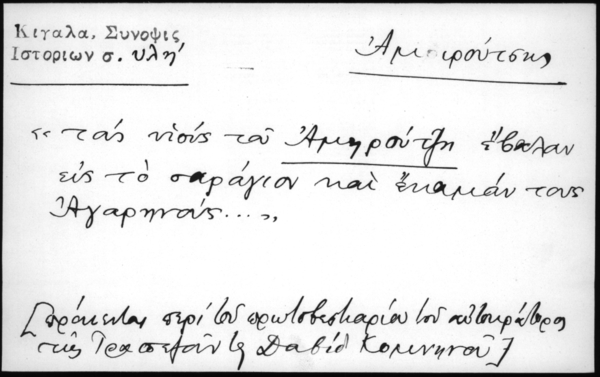 Κιγαλα, Συνοψις
Ιστοριων σ. υλη'
Ἀμοιρούτσης
« τοὺς υἱούς τοῦ Ἀμηρούτζη ἔβαλαν
εἰς τὸ σαράγιον καὶ ἔκαμάν τους
Ἀγαρηνούς... »
[πρόκειται περί τοῦ πρωτοβεστιαρίου τοῦ αὐτοκράτορος
τῆς Τραπεζοῦντος Δαβίδ Κομνηνοῦ]